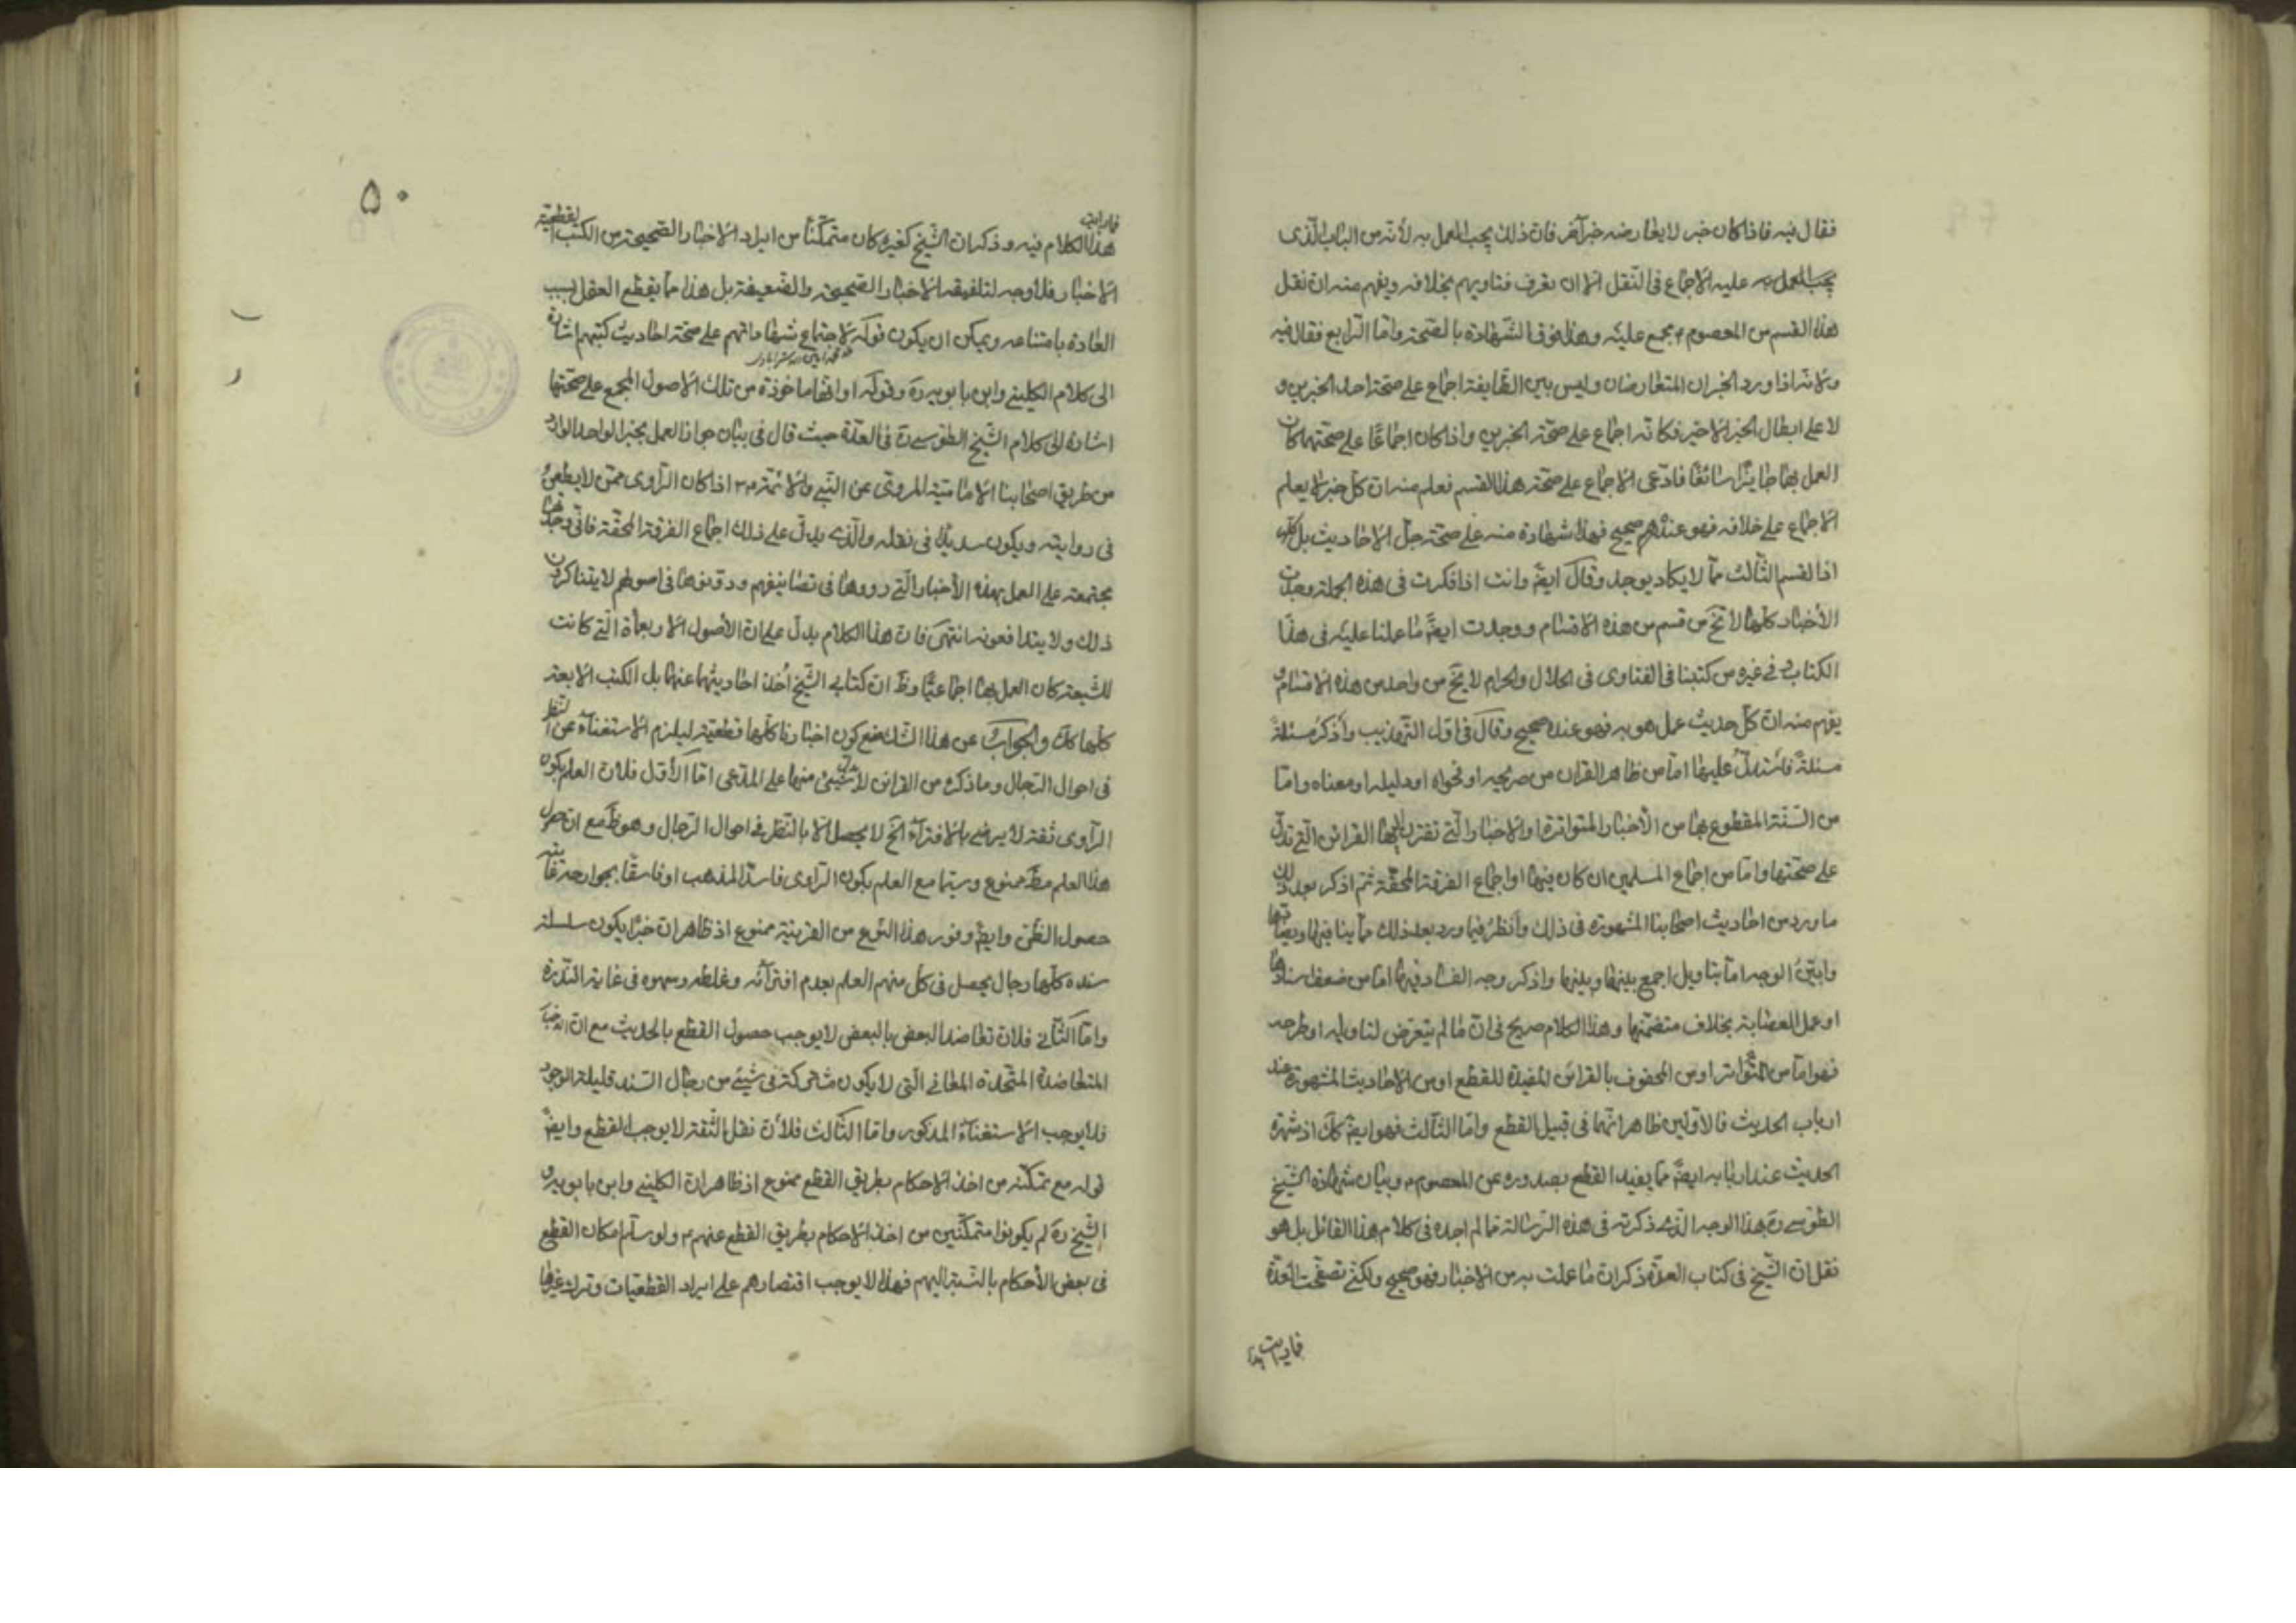 فقال فيه فاذا كان خبر لا يعارضه خبر آخر فان ذلك يجب العمل به لأنه من الباب الذى
يجب العمل به عليه الاجماع فى النقل الا ان يعرف فتاويهم بخلافه ويفهم منه ان نقل
هذا القسم من المعصوم م مجمع عليه وهذا فوق الشهادة بالصحة واما الرابع فقال فيه
ولانه اذا ورد الخبران المتعارضان وليس بين الطايفة اجماع على صحة احد الخبرين و
لا على ابطال الخبر الاخير فكانه اجماع على صحة الخبرين واذا كان اجماعا على صحتهما كان
العمل بهما جايزا سائغا فادعى الاجماع على صحة هذا القسم فعلم منه ان كل خبر لا يعلم
الاجماع على خلافه فهو عندهم صحيح فهذا شهادة منه على صحة جل الاحاديث بل كلها
اذ القسم الثالث مما لا يكاد يوجد وقال ايضا وانت اذا فكرت فى هذه الجملة وجدت
الأخبار كلها لا تخ من قسم من هذه الاقسام ووجدت ايضا ما عملنا عليه فى هذا
الكتاب وفى غيره من كتبنا فى الفتاوى فى الحلال والحرام لا يخ من واحد من هذه الاقسام و
يفهم منه ان كل حديث عمل هو به فهو عنده صحيح وقال فى اول التهذيب واذكر مسئلة
مسئلة فاستدل عليها اما من ظاهر القران من صريحه او فحواه او دليله او معناه واما
من السنة المقطوع بها من الأخبار المتواترة او الاخبار التى تقترن اليها القرائن التى تدل
على صحتها واما من اجماع المسلمين ان كان فيها او اجماع الفرقة المحقة ثم اذكر بعد ذلك
ما ورد من احاديث اصحابنا المشهورة فى ذلك وأنظر فيما ورد بعد ذلك مما ينافيها ويضادها
وابين الوجه اما بتاويل اجمع بينها وبينها واذكر وجه الفساد فيها اما من ضعف اسنادها
او عمل العصابة بخلاف متضمنها وهذا الكلام صريح فى ان ما لم يتعرض لتاويله او طرحه
فهو اما من المتواتر او من المحفوف بالقرائن المفيدة للقطع او من الاحاديث المشهورة عند
ارباب الحديث فالاولين ظاهر انهما فى قبيل القطع واما الثالث فهو ايضا كك اذ شهرة
الحديث عند اربابه ايضا مما يفيد القطع بصدوره عن المعصوم م وبيان شهادة الشيخ
الطوسى ره بهذا الوجه الذى ذكرته فى هذه الرسالة مما لم اجده فى كلام هذا القائل بل هو
نقل ان الشيخ فى كتاب العدة ذكر ان ما عملت به من الاخبار فهو صحيح ولكنى تصفحت العدة
فما رايت هذا
۵۰
فما رايت
هذا الكلام فيه وذكر ان الشيخ كغيره كان متمكنا من ايراد الاخبار الصحيحة من الكتب القطعية
الاخبار فلا وجه لتلفيقه الاخبار الصحيحة والضعيفة بل هذا مما يقطع العقل بسبب
العادة بامتناعه ويمكن ان يكون قوله لاجتماع شهاداتهم على صحة احاديث كتبهم اشارة
الى كلام الكلينى وابن بابويه ره وقوله او انها ماخوذة من تلك الاصول المجمع على صحتها
اشارة الى كلام الشيخ الطوسى ره فى العدة حيث قال فى بيان جواز العمل بخبر الواحد الوارد
من طريق اصحابنا الامامية المروى عن النبى والائمة م اذا كان الراوى ممن لا يطعن
فى روايته ويكون سديدا فى نقله والذى يدل على ذلك اجماع الفرقة المحقة فانى وجدتها
مجتمعة على العمل بهذه الأخبار التى رووها فى تصانيفهم ودونوها فى اصولهم لا يتناكرون
ذلك ولا يتدافعونه انتهى فان هذا الكلام يدل على ان الأصول الاربعمأة التى كانت
للشيعة كان العمل بها اجماعيا وظ ان كتابى الشيخ اخذ احاديثهما عنها بل الكتب الاربعة
كلها كك والجواب عن هذا الشك منع كون اخبارنا كلها قطعية ليلزم الاستغناء عن النظر
فى احوال الرجال وما ذكره من القرائن لا يدل شيئ منها على المدعى اما الأول فلان العلم بكون
الراوى ثقة لا يرضى بالافتراء الخ لا يحصل الا بالنظر فى احوال الرجال وهو ظ مع ان حصول
هذا العلم مط ممنوع وسيما مع العلم بكون الراوى فاسد المذهب او فاسقا بجوارحه غايته
حصول الظن وايضا وفور هذا النوع من القرينة ممنوع اذ ظاهر ان خبرا يكون سلسلة
سنده كلها رجال يحصل فى كل منهم العلم بعدم افترائه وغلطه وسهوه فى غاية الندرة
واما الثانى فلان تعاضد البعض بالبعض لا يوجب حصول القطع بالحديث مع ان
المتعاضدة المتحدة المعانى التى لا يكون مشتركة فى شيئ من رجال السند قليلة الوجود
فلا يوجب الاستغناء المذكور واما الثالث فلأن نقل الثقة لا يوجب القطع وايضا
قوله مع تمكنه من اخذ الاحكام بطريق القطع ممنوع اذ ظاهر ان الكلينى وابن بابويه و
الشيخ ره لم يكونوا متمكنين من اخذ الاحكام بطريق القطع عنهم م ولو سلم امكان القطع
فى بعض الأحكام بالنسبة اليهم فهذا لا يوجب اقتصارهم على ايراد القطعيات وترك غيرها